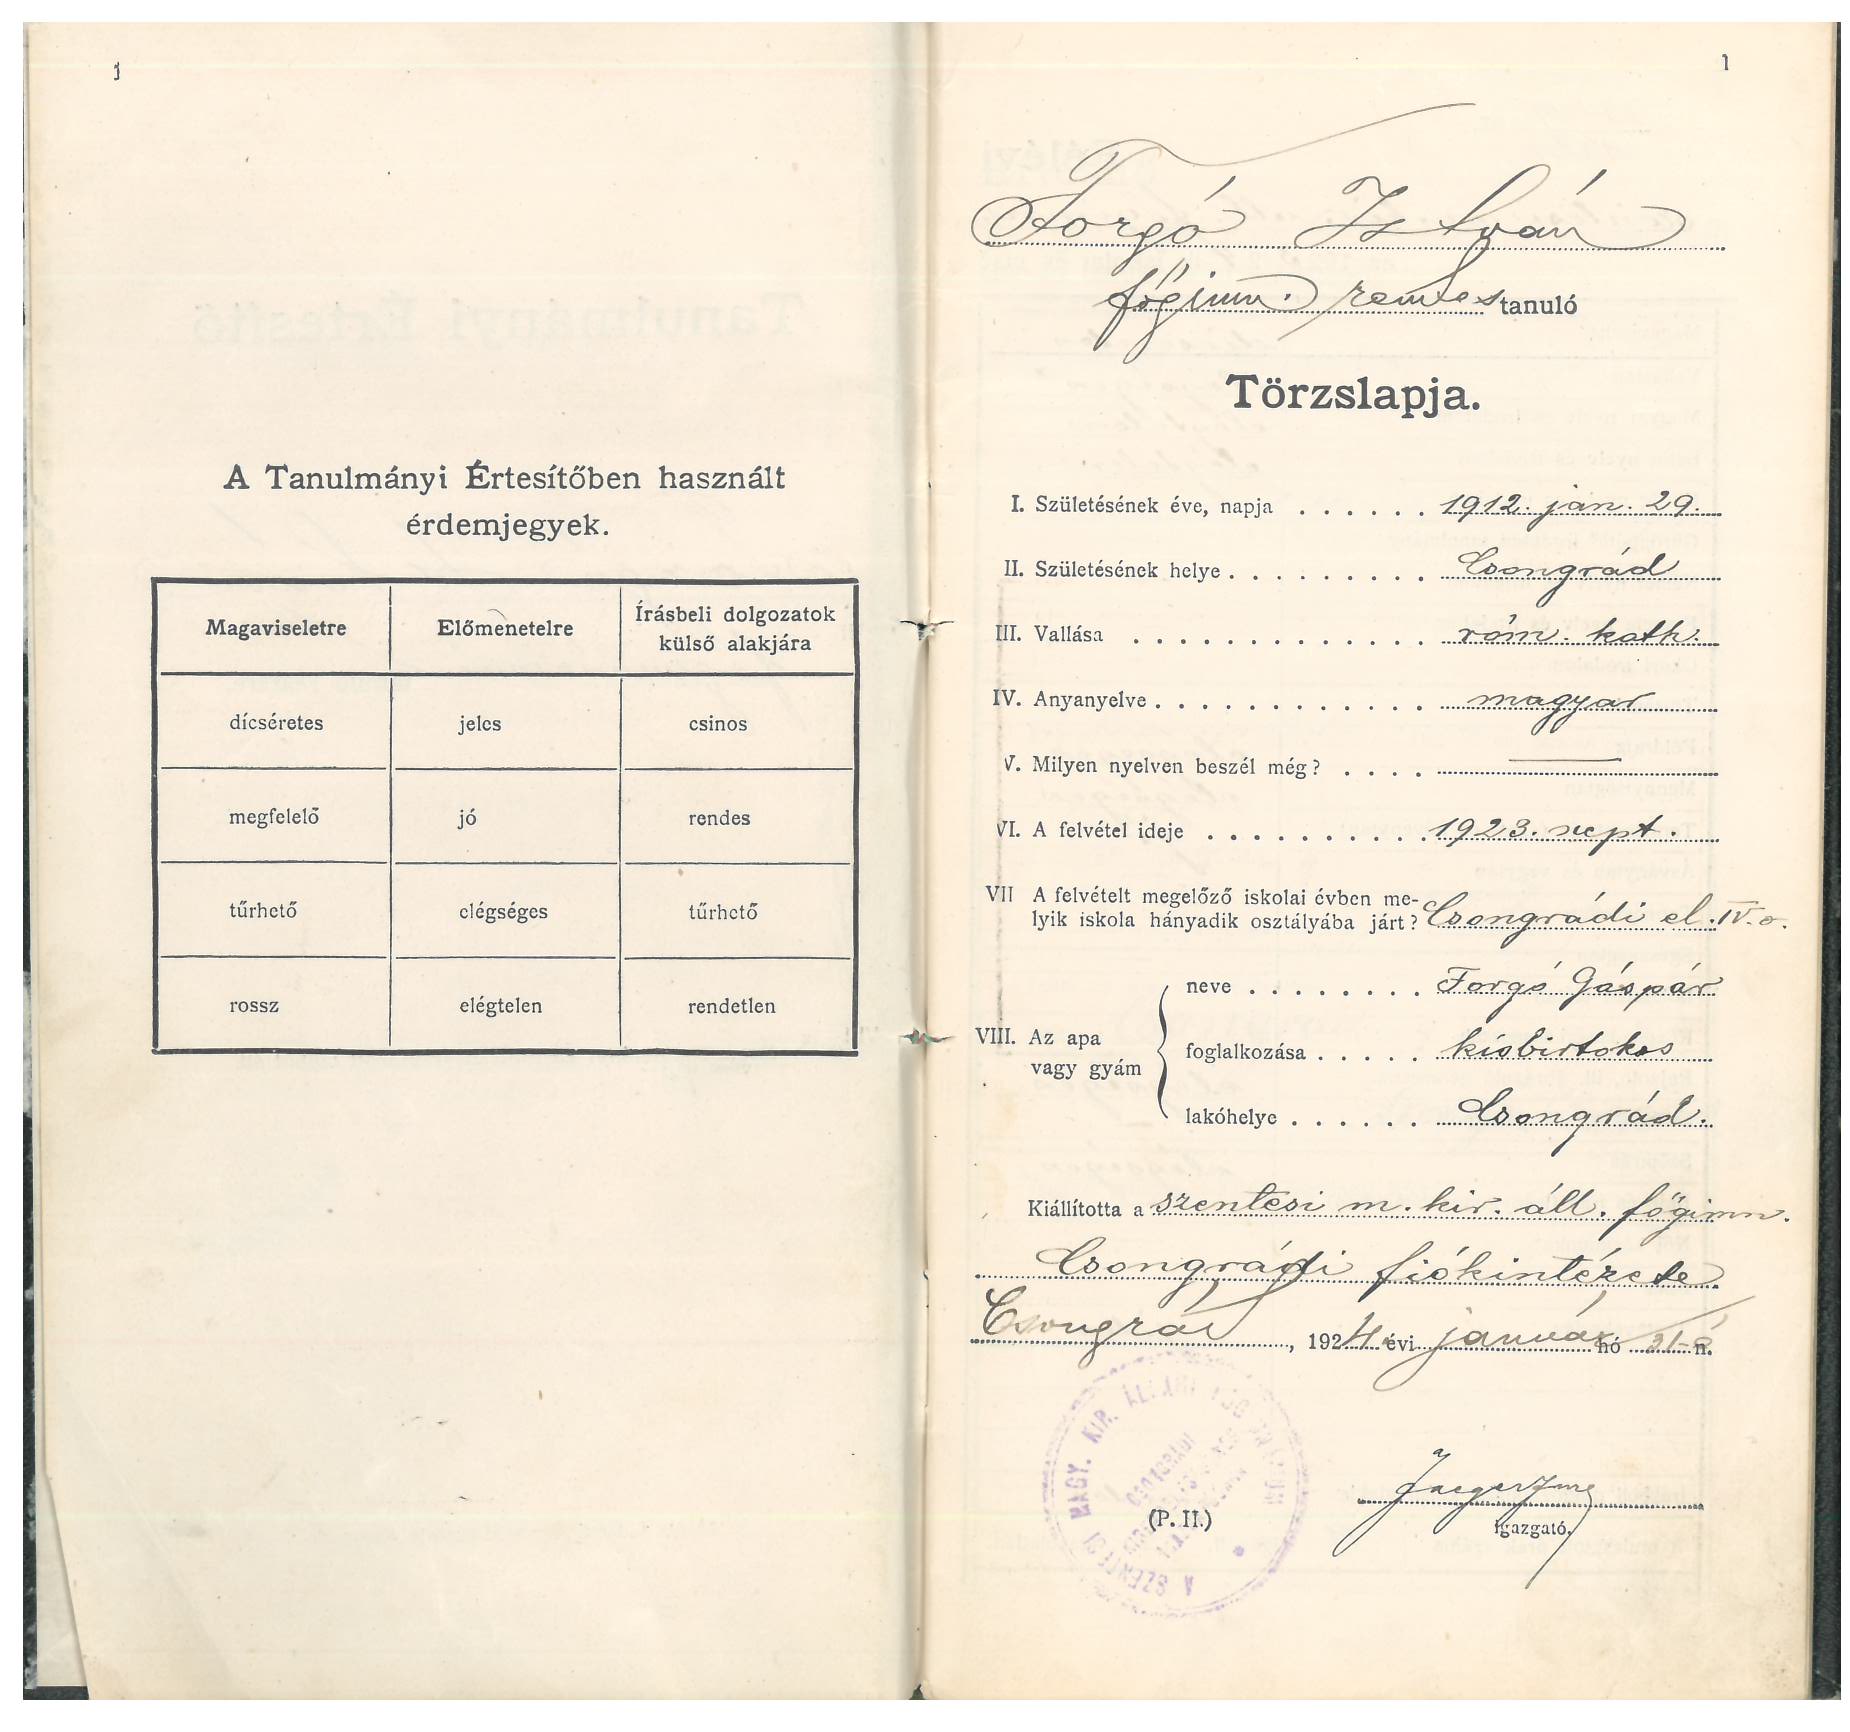 1
A Tanulmányi Értesítőben használt
érdemjegyek.
Magaviseletre Előmenetelre Írásbeli dolgozatok
külső alakjára
dícséretes jeles csinos
megfelelő jó rendes
tűrhető elégséges tűrhető
rossz elégtelen rendetlen
1
Forgó István
főgimn. rendes tanuló
Törzslapja.
I. Születésének éve, napja . . . . . . 1912. jan. 29.
II. Születésének helye . . . . . . . . . Csongrád
III. Vallása . . . . . . . . . . . . róm. kath.
IV. Anyanyelve . . . . . . . . . . . magyar
V. Milyen nyelven beszél még? . . . . —
VI. A felvétel ideje . . . . . . . . . 1923. szept.
VII A felvételt megelőző iskolai évben me-
lyik iskola hányadik osztályába járt? Csongrádi el. IV. o.
VIII. Az apa
vagy gyám
neve . . . . . . . Forgó Gáspár
foglalkozása . . . . . kisbirtokos
lakóhelye . . . . . . Csongrád.
Kiállította a szentesi m. kir. áll. főgimn.
Csongrádi fiókintézete
Csongrád, 1924. évi január hó 31-én.
A SZENTESI MAGY. KIR. ÁLLAMI
CSONGRÁDI
(P. II.)
Jaeger Imre
igazgató.